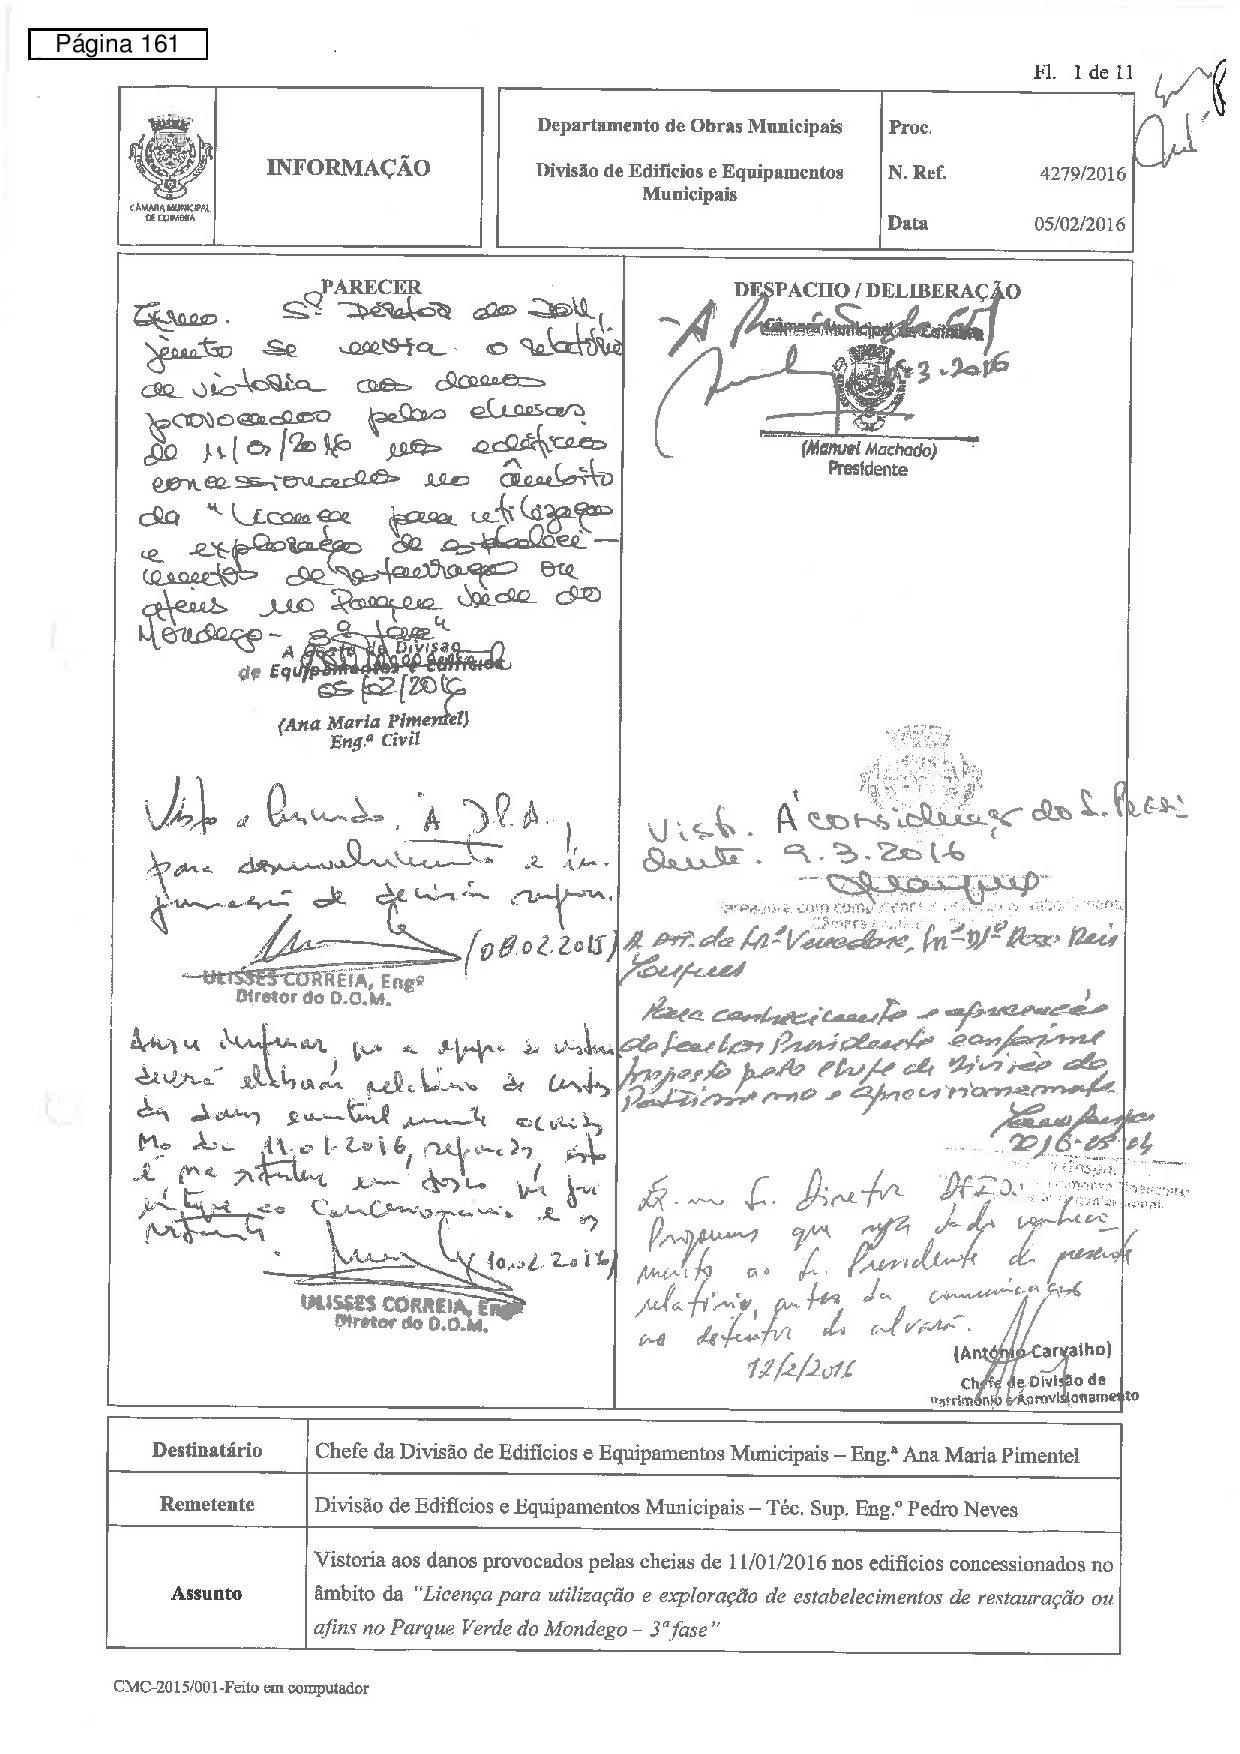 Página 161
Fl. 1 de 11
CÂMARA MUNICIPAL
DE COIMBRA
INFORMAÇÃO
Departamento de Obras Municipais
Divisão de Edifícios e Equipamentos
Municipais
Proc.
N. Ref. 4279/2016
Data 05/02/2016
PARECER
Exmo. Sr. Diretor do DOM,
junto se envia o relatório
de vistoria aos danos
provocados pelas cheias
de 11/01/2016 nos edifícios
concessionados no âmbito
da "Licença para utilização
e exploração de estabeleci-
mentos de restauração ou
afins no Parque Verde do
Mondego - 3ª fase"
A Chefe da Divisão
de Equipamentos e Edifícios
05/02/2016
(Ana Maria Pimentel)
Eng.ª Civil
Visto e Concordo. À D.P.A.,
para desenvolvimento e in-
formação de decisão superior.
(08.02.2015)
ULISSES CORREIA, Engº
Diretor do D.O.M.
que a equipa de vistoria
deverá elaborar relatório de custos
dos danos
no dia 11.01.2016,
10.02.2016
ULISSES CORREIA, Engº
Diretor do D.O.M.
DESPACHO / DELIBERAÇÃO
- A
Câmara Municipal de Coimbra
3.2016
(Manuel Machado)
Presidente
Visto. À consideração do S. Presi
dente. 9.3.2016
A Srª Vereadora,
Para conhecimento e
do Senhor Presidente conforme
proposto pelo Chefe de Divisão de
Património e Aprovisionamento
2016-03-04
Ex.mo S. Diretor
Propomos que seja dado conheci
mento ao S. Presidente do presente
relatório, antes da comunicação
ao detentor do alvará.
12/2/2016
(António Carvalho)
Chefe de Divisão de
Património e Aprovisionamento
Destinatário Chefe da Divisão de Edifícios e Equipamentos Municipais – Eng.ª Ana Maria Pimentel
Remetente Divisão de Edifícios e Equipamentos Municipais – Téc. Sup. Eng.º Pedro Neves
Assunto Vistoria aos danos provocados pelas cheias de 11/01/2016 nos edifícios concessionados no
âmbito da "Licença para utilização e exploração de estabelecimentos de restauração ou
afins no Parque Verde do Mondego – 3ª fase"
CMC-2015/001-Feito em computador